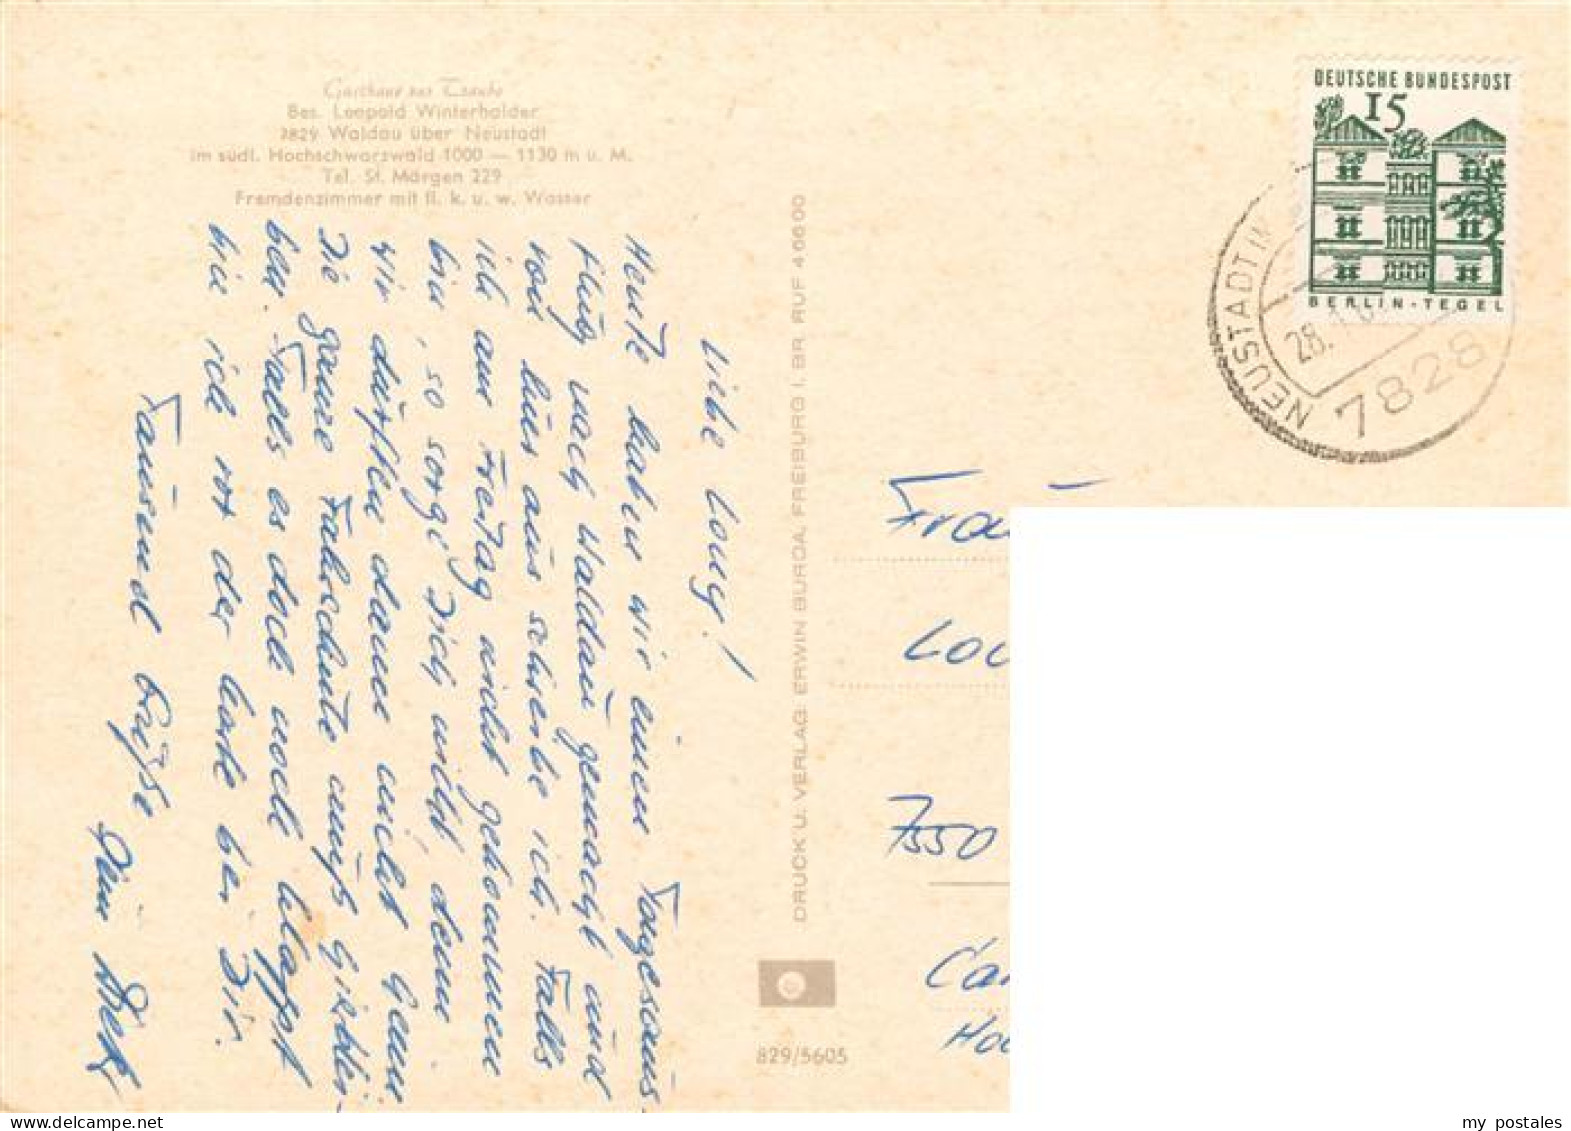 Gasthaus zur Traube
Bes. Leopold Winterhalder
7829 Waldau über Neustadt
im südl. Hochschwarzwald 1000 — 1130 m ü. M.
Tel. St. Märgen 229
Fremdenzimmer mit fl. k. u. w. Wasser
Liebe Louy!
Heute haben wir einen Tagesaus-
flug nach Waldau gemacht und
von hier aus schreibe ich. Falls
ich am Freitag nicht gekommen
bin, so sorge Dich nicht, denn
wir dürften dann nicht
Die ganze Fahrschule muss
ben. Falls es doch noch klappt
bin ich vor der Karte bei Dir.
Tausend Grüße
Dein
DRUCK U. VERLAG: ERWIN BURDA, FREIBURG I. BR. RUF 46600
829/5605
DEUTSCHE BUNDESPOST
15
BERLIN-TEGEL
NEUSTADT IM
28.
7828
Frau
Lou
7550
my postales